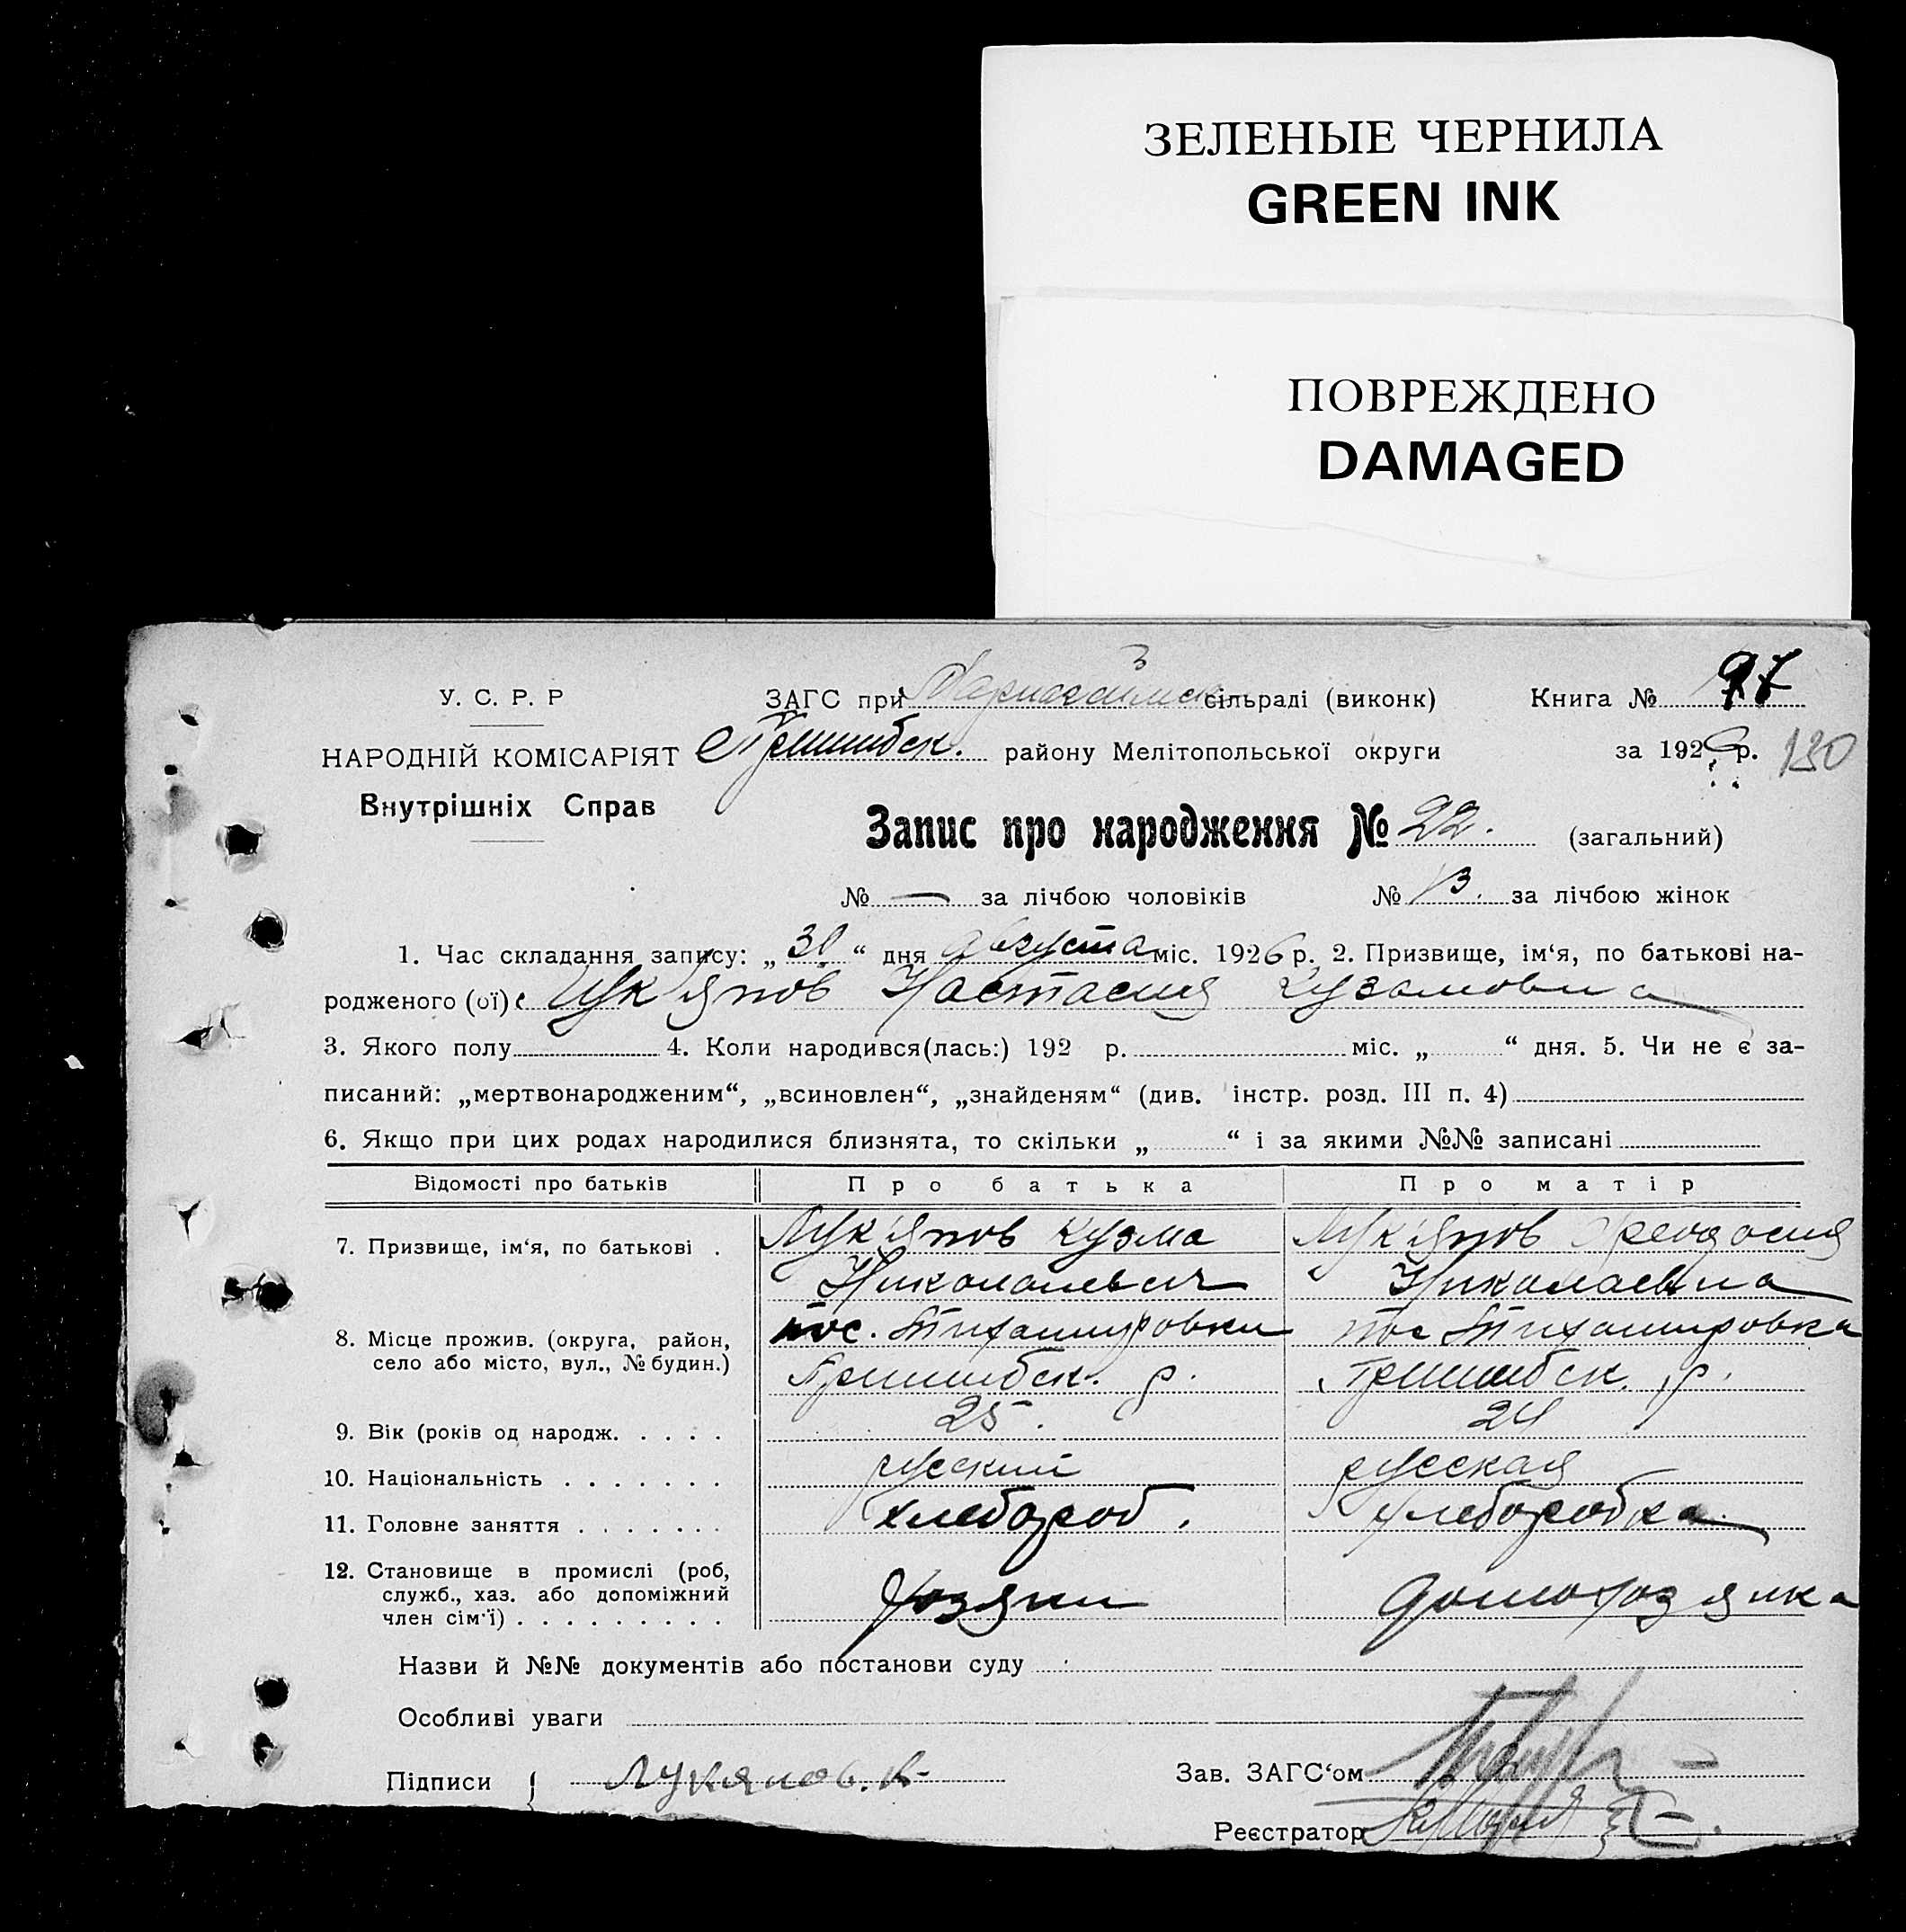 ЗЕЛЕНЫЕ ЧЕРНИЛА
GREEN INK
ПОВРЕЖДЕНО
DAMAGED
У. С. Р. Р
ЗАГС при сільраді (виконк) Книга № 97
НАРОДНІЙ КОМІСАРІЯТ Пришибск. району Мелітопольської округи за 1926 р. 130
Внутрішніх Справ
Запис про народження № 22. (загальний)
№ — за лічбою чоловіків № 13. за лічбою жінок
1. Час складання запису: „ “ дня августа міс. 1926 р. 2. Призвище, ім‘я, по батькові на-
родженого (ої) Лук'янов Настасия Кузьмовна
3. Якого полу 4. Коли народився(лась:) 192 р. міс. „ “ дня. 5. Чи не є за-
писаний: „мертвонародженим“, „всиновлен“, „знайденям“ (див. інстр. розд. III п. 4)
6. Якщо при цих родах народилися близнята, то скільки „ “ і за якими №№ записані
Відомості про батьків Про батька Про матір
7. Призвище, ім‘я, по батькові . Лук'янов Кузма Лук'янов Феодосия
Николаевич Николаевна
8. Місце прожив. (округа, район, пос. Тихомировка пос Тихомировка
село або місто, вул., № будин.) Пришибск. р. Пришибск. р.
9. Вік (років од народж. . . . . 25. 24
10. Національність . . . . . . . русский русская
11. Головне заняття . . . . . . . хлебороб. хлеборобка
12. Становище в промислі (роб,
служб., хаз. або допоміжний Хозяин домохозяйка
член сім‘ї) . . . . . . . . .
Назви й №№ документів або постанови суду
Особливі уваги
Підписи { Лукянов. К. Зав. ЗАГС‘ом
Реєстратор